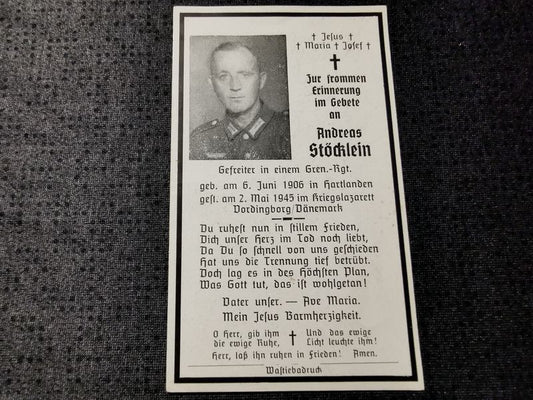 † Jesus †
† Maria † Josef †
†
Zur frommen
Erinnerung
im Gebete
an
Andreas
Stöcklein
Gefreiter in einem Gren.-Rgt.
geb. am 6. Juni 1906 in Hartlanden
gest. am 2. Mai 1945 im Kriegslazarett
Vordingborg/Dänemark
Du ruhest nun in stillem Frieden,
Dich unser Herz im Tod noch liebt,
Da Du so schnell von uns geschieden
Hat uns die Trennung tief betrübt.
Doch lag es in des Höchsten Plan,
Was Gott tut, das ist wohlgetan!
Vater unser. — Ave Maria.
Mein Jesus Barmherzigkeit.
O Herr, gib ihm † Und das ewige
die ewige Ruhe, Licht leuchte ihm!
Herr, laß ihn ruhen in Frieden! Amen.
Wastiebadruck